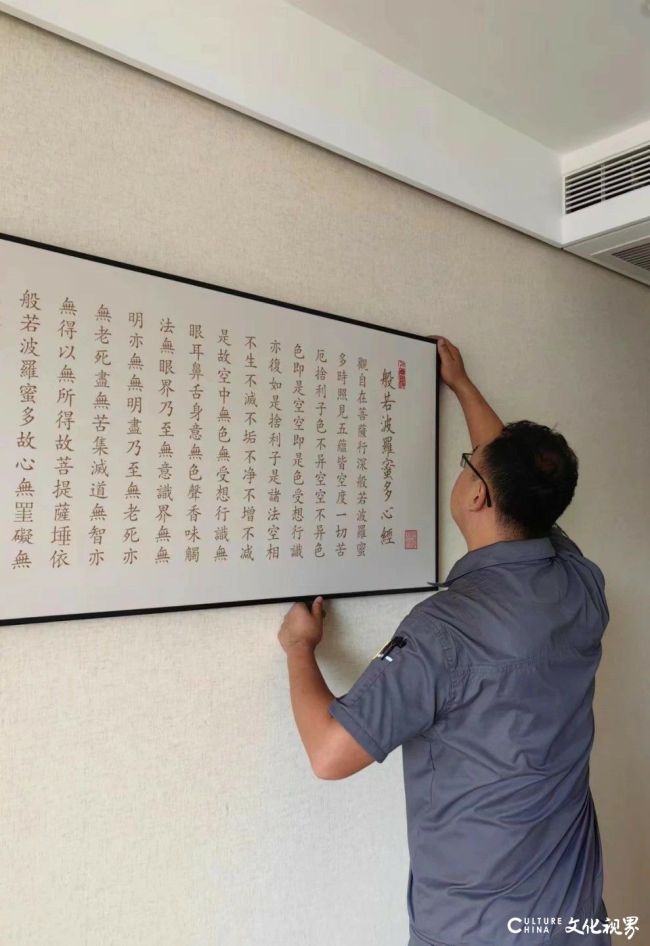 般若波羅蜜多心經
觀自在菩薩行深般若波羅蜜
多時照見五蘊皆空度一切苦
厄捨利子色不异空空不异色
色即是空空即是色受想行識
亦復如是捨利子是諸法空相
不生不滅不垢不净不增不減
是故空中無色無受想行識無
眼耳鼻舌身意無色聲香味觸
法無眼界乃至無意識界無無
明亦無無明盡乃至無老死亦
無老死盡無苦集滅道無智亦
無得以無所得故菩提薩埵依
般若波羅蜜多故心無罣礙無
CULTURE
CHINA 文化视界